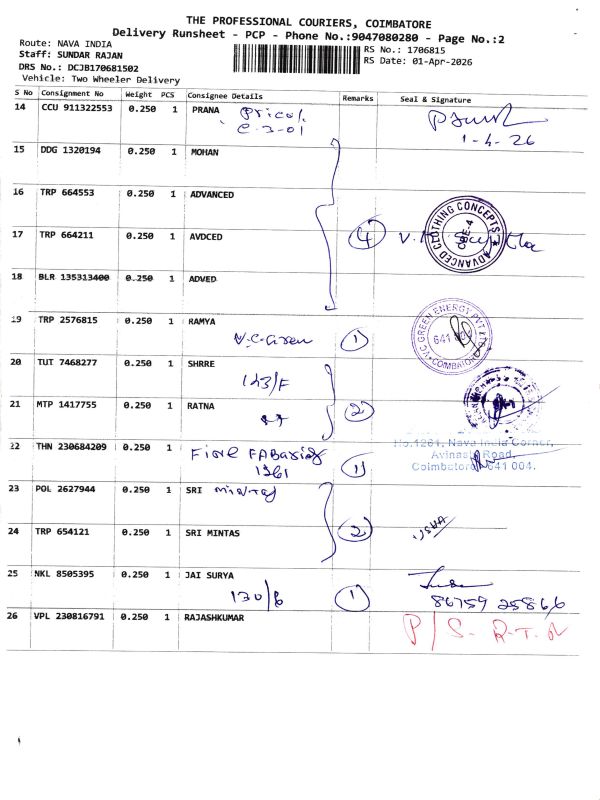 THE PROFESSIONAL COURIERS, COIMBATORE
Delivery Runsheet - PCP - Phone No.:9047080280 - Page No.:2
Route: NAVA INDIA
RS No.: 1706815
Staff: SUNDAR RAJAN
RS Date: 01-Apr-2026
DRS No.: DCJB170681502
Vehicle: Two Wheeler Delivery
S No Consignment No Weight PCS Consignee Details Remarks Seal & Signature
14 CCU 911322553 0.250 1 PRANA Pricol
C-3-01
1-4-26
15 DDG 1320194 0.250 1 MOHAN
16 TRP 664553 0.250 1 ADVANCED
17 TRP 664211 0.250 1 AVDCED 4
ADVANCED CLOTHING CONCEPTS
CBE-4
18 BLR 135313400 0.250 1 ADVED
19 TRP 2576815 0.250 1 RAMYA
V.C-Green 1
V.C GREEN ENERGY PVT LTD
641
COIMBATORE
20 TUT 7468277 0.250 1 SHRRE
123/F
21 MTP 1417755 0.250 1 RATNA 2
22 THN 230684209 0.250 1
1261 1
No.1261, Nava India Corner,
Avinashi Road,
Coimbatore 641 004.
23 POL 2627944 0.250 1 SRI
24 TRP 654121 0.250 1 SRI MINTAS 2
USHA
25 NKL 8505395 0.250 1 JAI SURYA
130/B 1
86759 25866
26 VPL 230816791 0.250 1 RAJASHKUMAR
P/S. R.T.